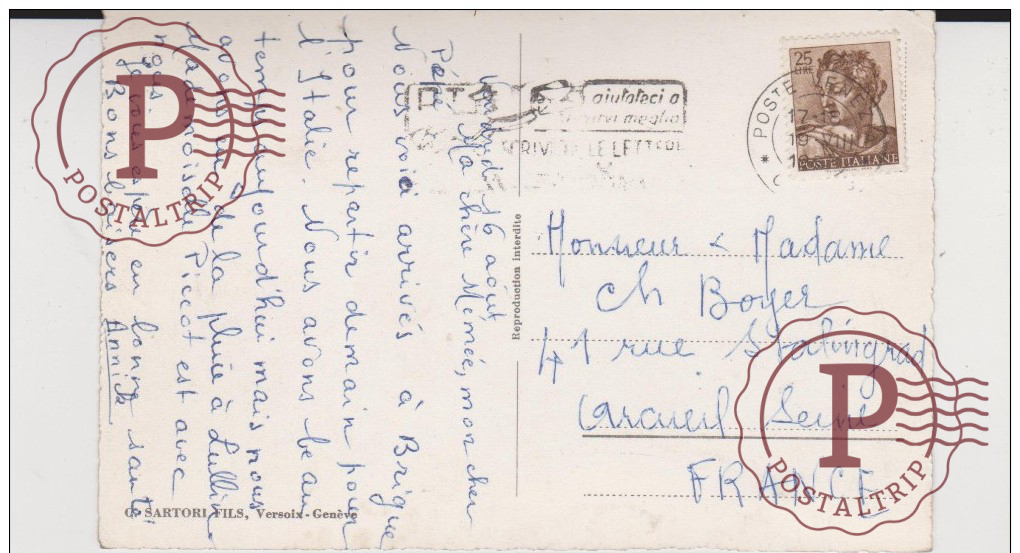 Vendredi 16 août
Ma chère Mémée, mon cher
Pépé
Nous voici arrivés à Brigue
pour repartir demain pour
l'Italie. Nous avons beau
temps aujourd'hui mais nous
avons eu de la pluie à Lullin
Mademoiselle Piccot est avec
nous
Je vous espère en bonne santé
Bons baisers Annick
G. SARTORI FILS, Versoix-Genève
Reproduction interdite
aiutateci a
servirvi meglio
SCRIVETE LE LETTERE
POSTE
17-18
19 VIII
25
LIRE
POSTE ITALIANE
Monsieur & Madame
Ch Boyer
41 rue Stalingrad
Arcueil Seine
FRANCE
P
POSTALTRIP
P
POSTALTRIP